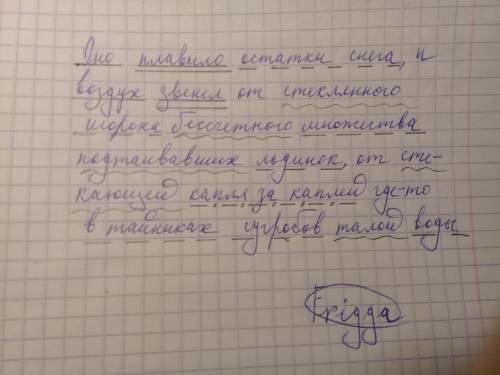 Оно плавило остатки снега, и
воздух звенел от стеклянного
шороха бессчетного множества
подтаивавших льдинок, от сте-
кающей капля за каплей где-то
в тайниках сугробов талой воды
Frigga